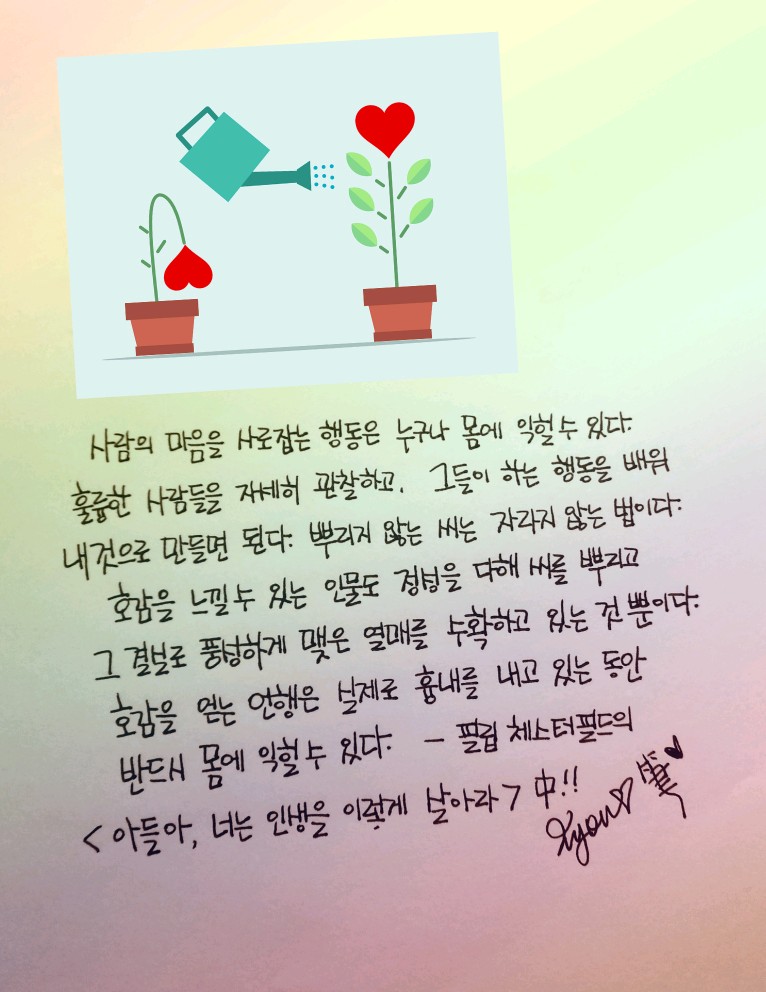 사람의 마음을 사로잡는 행동은 누구나 몸에 익힐 수 있다.
훌륭한 사람들을 자세히 관찰하고, 그들이 하는 행동을 배워
내것으로 만들면 된다. 뿌리지 않는 씨는 자라지 않는 법이다.
호감을 느낄 수 있는 인물도 정성을 다해 씨를 뿌리고
그 결실로 풍성하게 맺은 열매를 수확하고 있는 것 뿐이다.
호감을 얻는 언행은 실제로 흉내를 내고 있는 동안
반드시 몸에 익힐 수 있다. - 필립 체스터필드의
<아들아, 너는 인생을 이렇게 살아라> 中!!